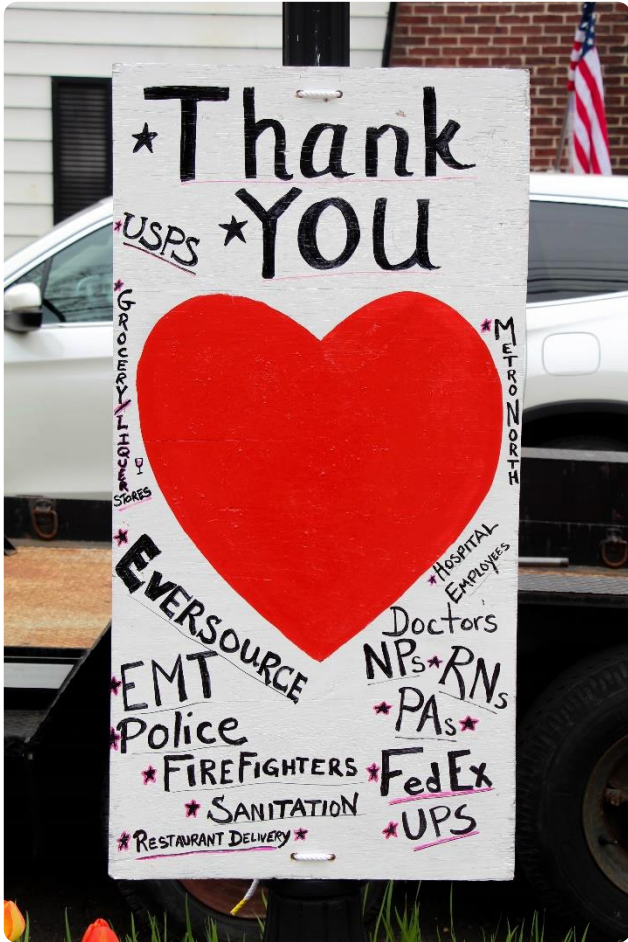 Thank
YOU
USPS
GROCERY/LIQUER
STORES
METRO NORTH
EVERSOURCE
HOSPITAL
EMPLOYEES
Doctors
NPs RNs
PAs
EMT
Police
FIREFIGHTERS
FedEx
SANITATION
UPS
RESTAURANT DELIVERY